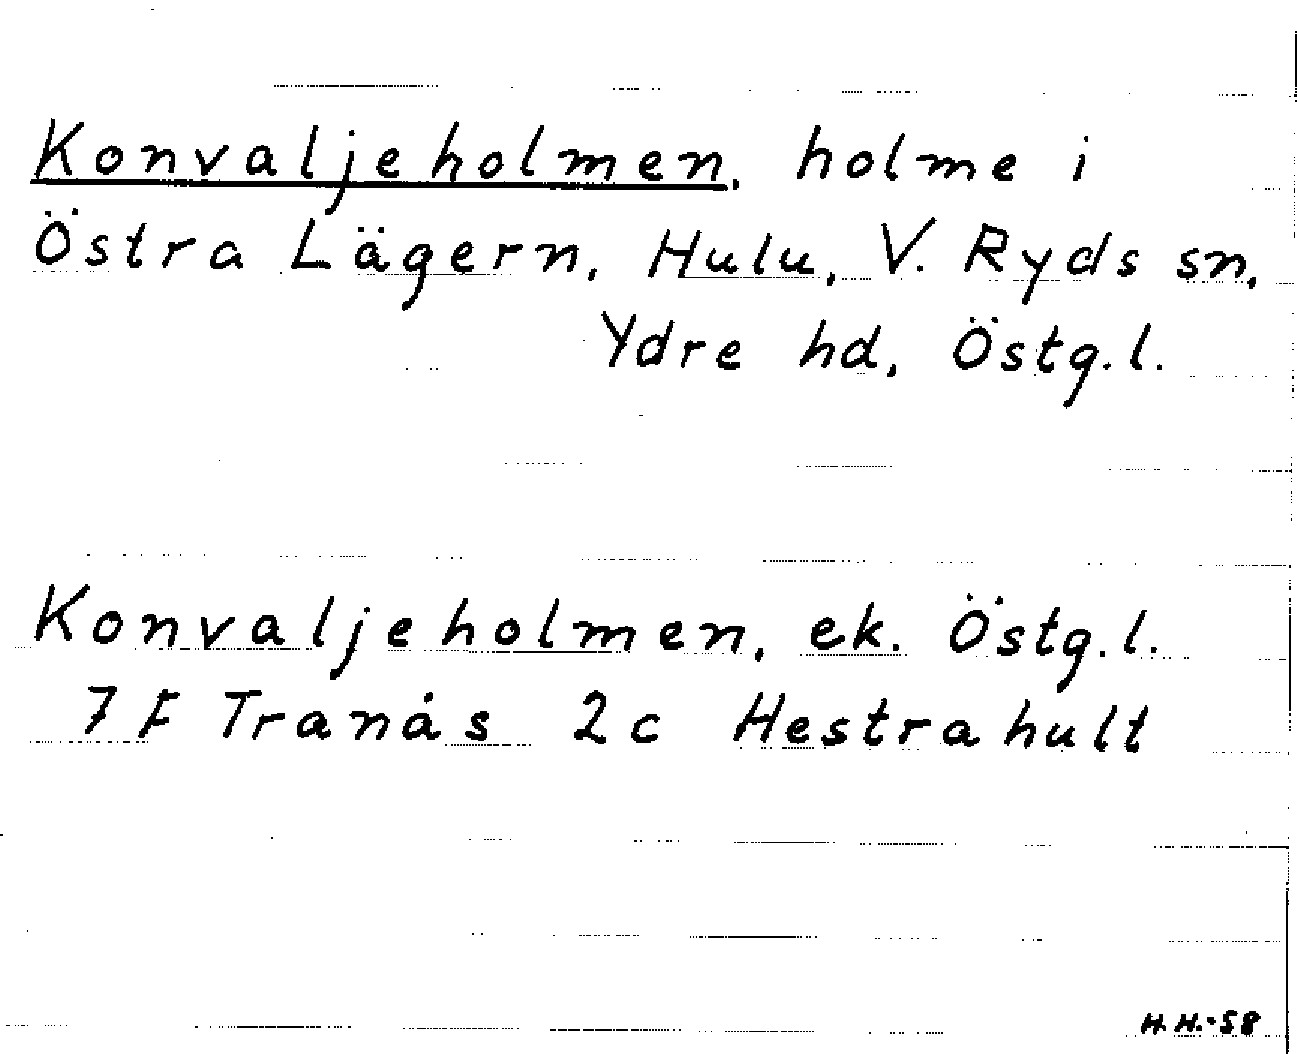 Konvaljeholmen, holme i
Östra Lägern, Hulu, V. Ryds sn,
Ydre hd, Östg.l.
Konvaljeholmen, ek. Östg.l.
7 F Tranås 2c Hestrahult
H.H.-58